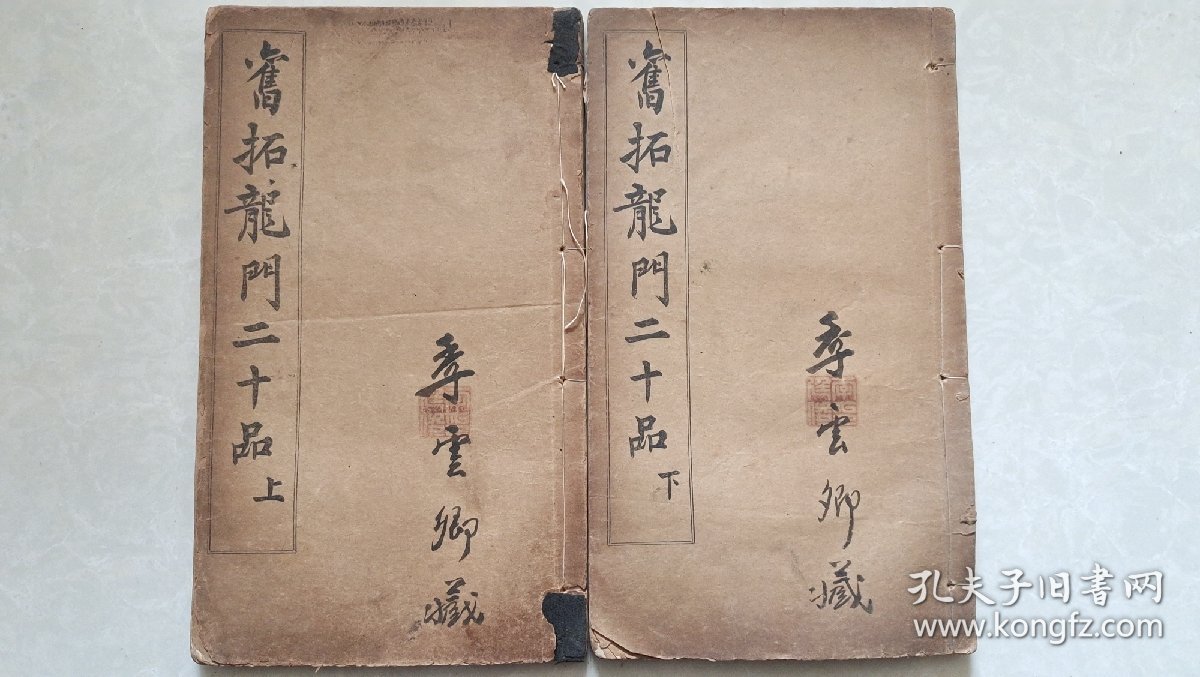 舊拓龍門二十品上
季雲卿藏
舊拓龍門二十品下
季雲卿藏
孔夫子旧书网
www.kongfz.com